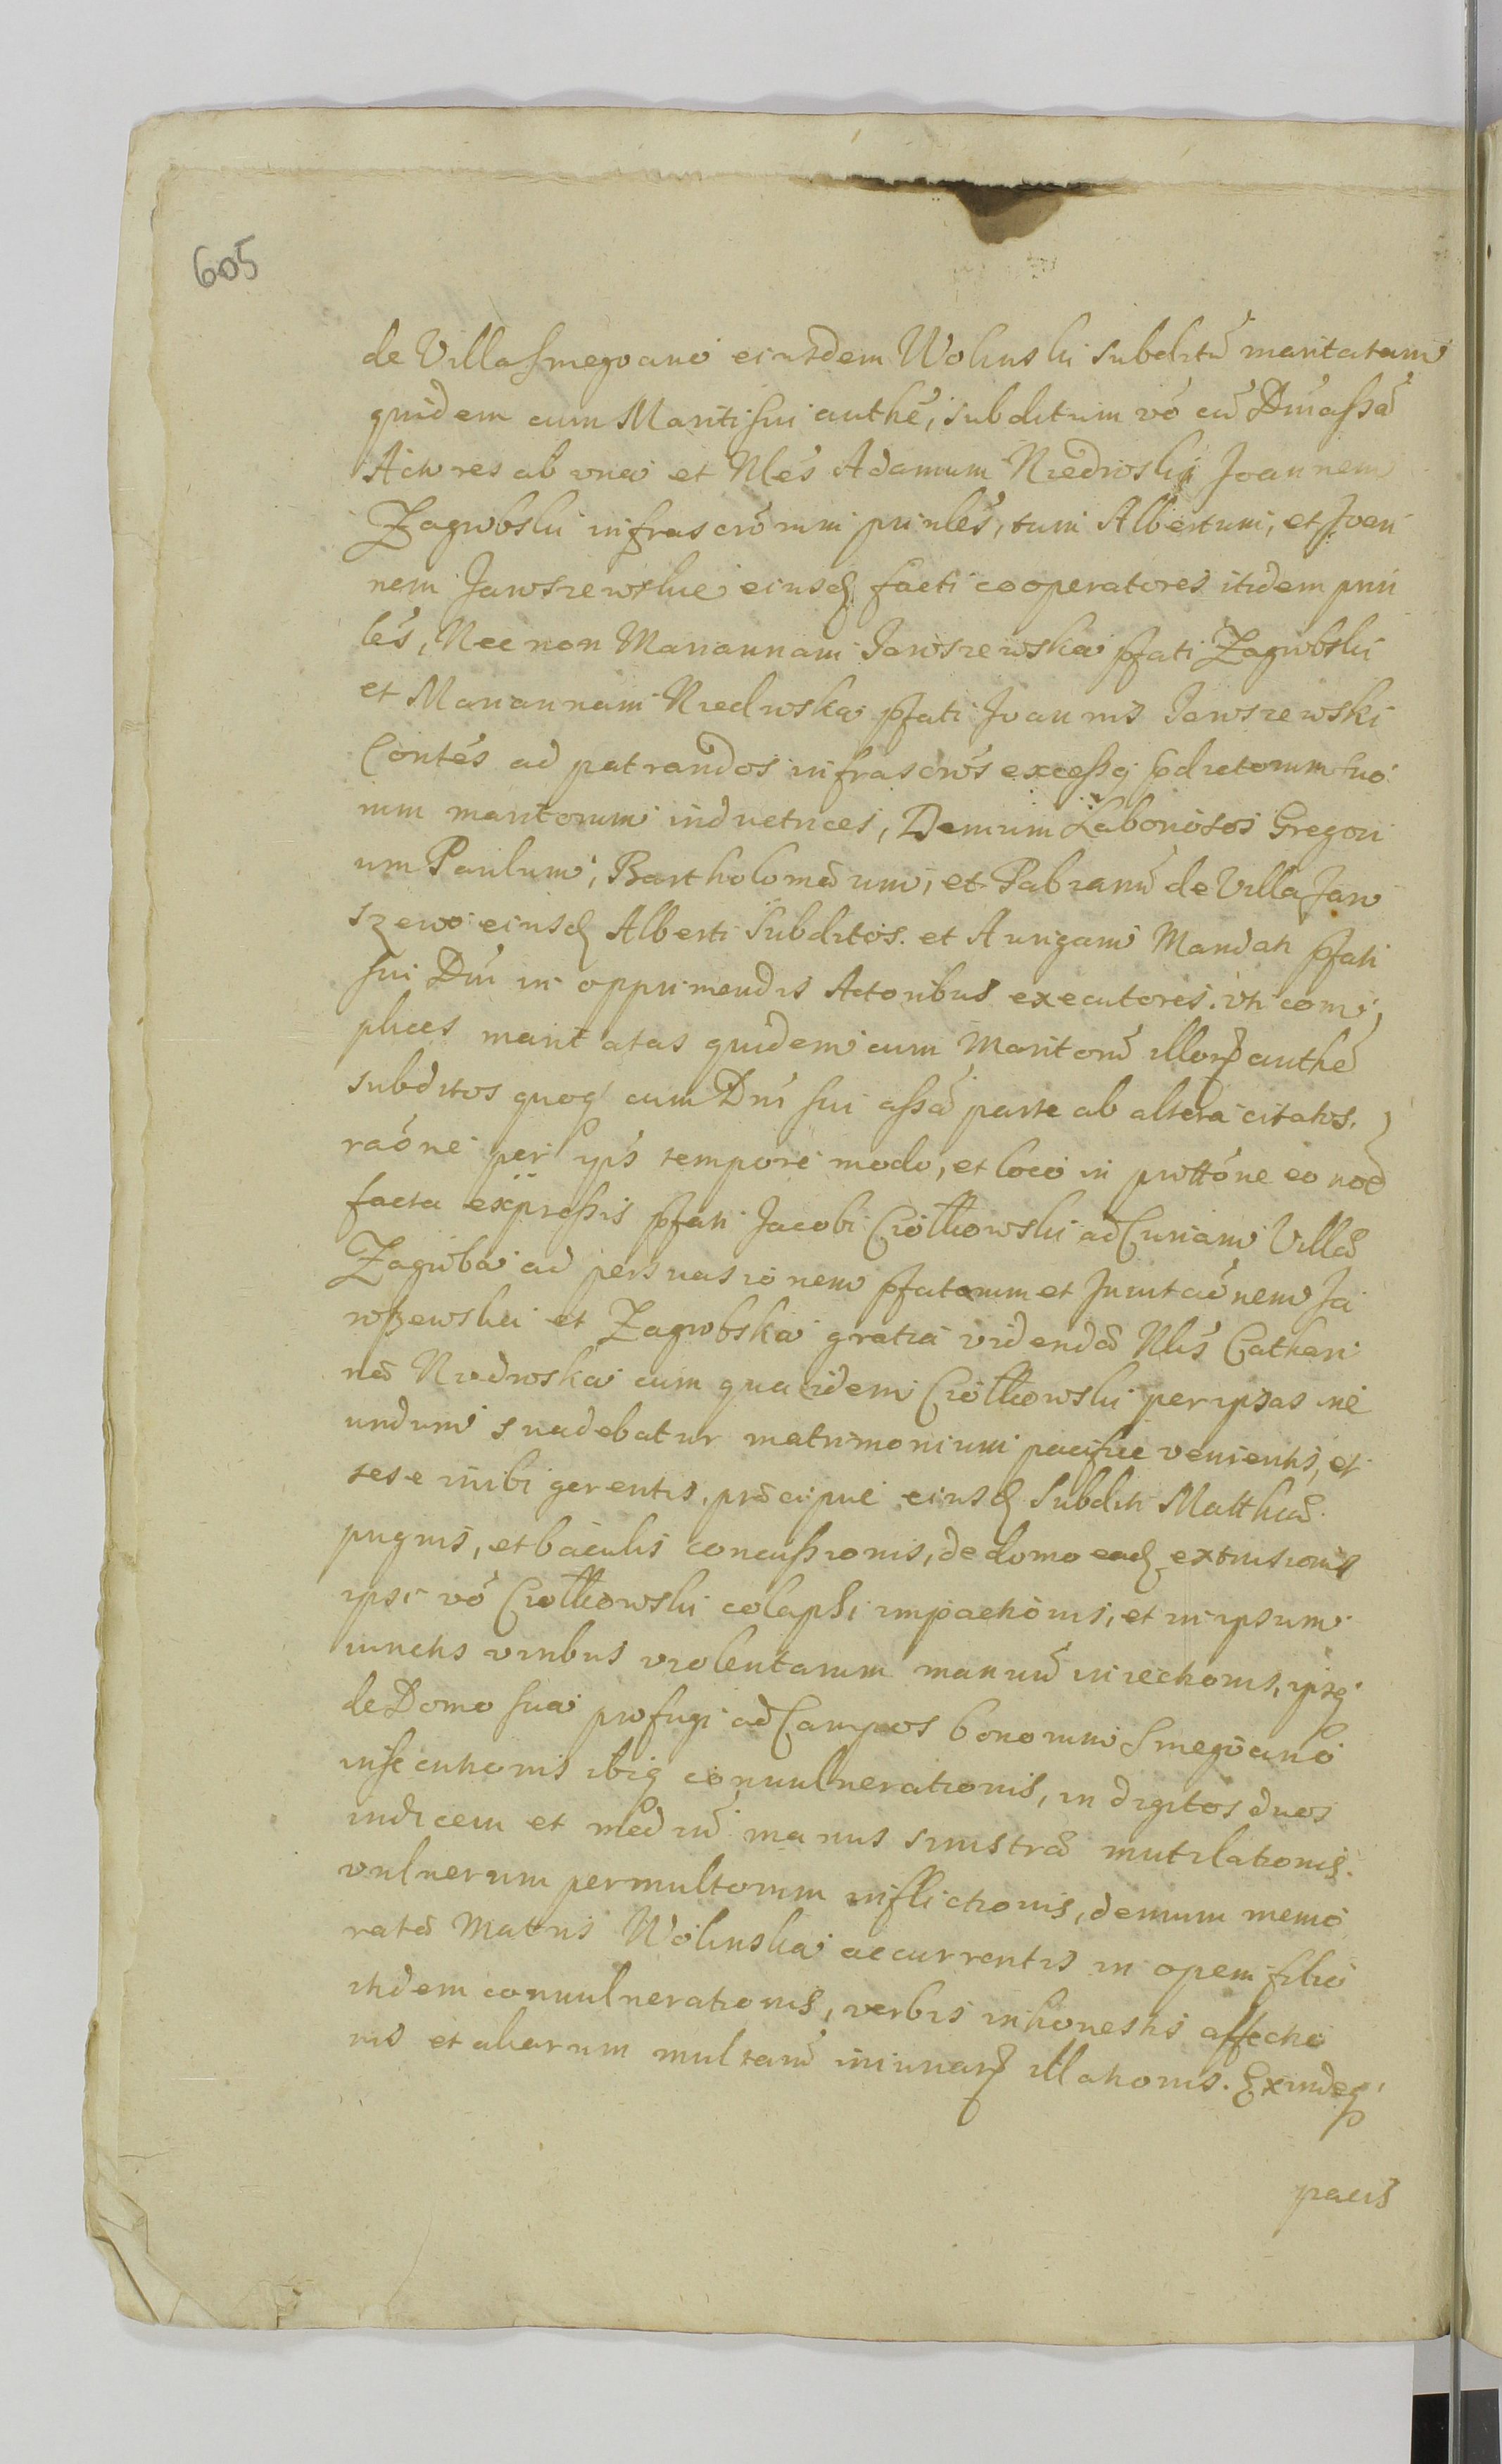 605
de Villa Smegvano eiusdem Wolinski subditū maritatam
quidem cum Mariti sui authē, subditum vó cū Dni assā
Actores ab una et Nlés Adamum Niedroski Joannem
Zagrobski infrascrórum prinlés, tum Albertum, et Joan
nem Jawszewskie eiusđ facti cooperatores itidem prin
lés, Nec non Mariannam Jawszewska pfati Zagrobski
et Mariannam Niedroska pfati Joannis Jawszewski
Contés ad patrandos infrascrós excessq pdictorum suo
rum maritorum inductrices, Demum Laboriosos Gregori
um Paulum, Bartholomæum, et Fabianū de Villa Jaw
szewo eiusđ Alberti Subditos. et Aurigam Mandati pfati
sui Dni in opprimendis Actoribus executores. uti com
plices maritatas quidem cum Maritorū illorꝝ authē
subditos quoqꝫ cum Dni sui assā parte ab altera citatos.
raóne per ipós tempore modo, et loco in prottóne eo noē
facta expressis pfati Jacobi Ciółkowski ad Curiam Villæ
Zagroba ad persuasionem pfatorum et Invitaónem Ja
wszewska et Zagrobska gratia videndæ Nlis Cathari
næ Niedroska cum qua eidem Ciółkowski per ipsas ine
undum suadebatur matrimonium pacifice venientis, et
sese inibi gerentis, præcipue eiusđ Subditi Matthiæ
pugnis, et baculis concussionis, de domo eađ extrusionis
ipsi vó Ciółkowski colaphi impactionis, et in ipsum
iunctis viribus violentarum manuū iniectionis, ipsqꝫ
de Domo sua profugi ad Campos bonorum Smegvano
insecutionis ibiqꝫ convulnerationis, in digitos duos
indicem et mediū manus sinistræ mutilationis.
vulnerum permultorum inflictionis, demum memo
ratæ Matris Wolinska accurrentis in opem filio
itidem convulnerationis, verbis inhonestis affectio
nis et aliarum multarū iniuriarꝝ illationis. Exindeqꝫ
pacis